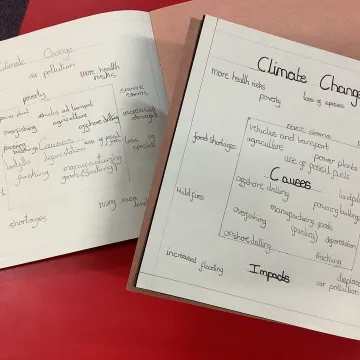 Climate Change
air pollution
more health
risks
poverty
severe
storms
power plant
vehicles and transport
increased
agriculture
overfishing
offshore drilling
powering
buildings
Causes
use of fossil
fuels
loss of
species
landfills
deforestation
fracking
manufacturing
goods (industry)
shortages
rising
Climate Change
more health risks
loss of species
poverty
severe storms
vehicles and transport
food shortages
agriculture
power plants
use of fossil fuels
offshore drilling
Causes
landfills
powering buildings
wildfires
manufacturing goods
overfishing
(industry)
onshore drilling
fracking
increased flooding
Impacts
air pollution